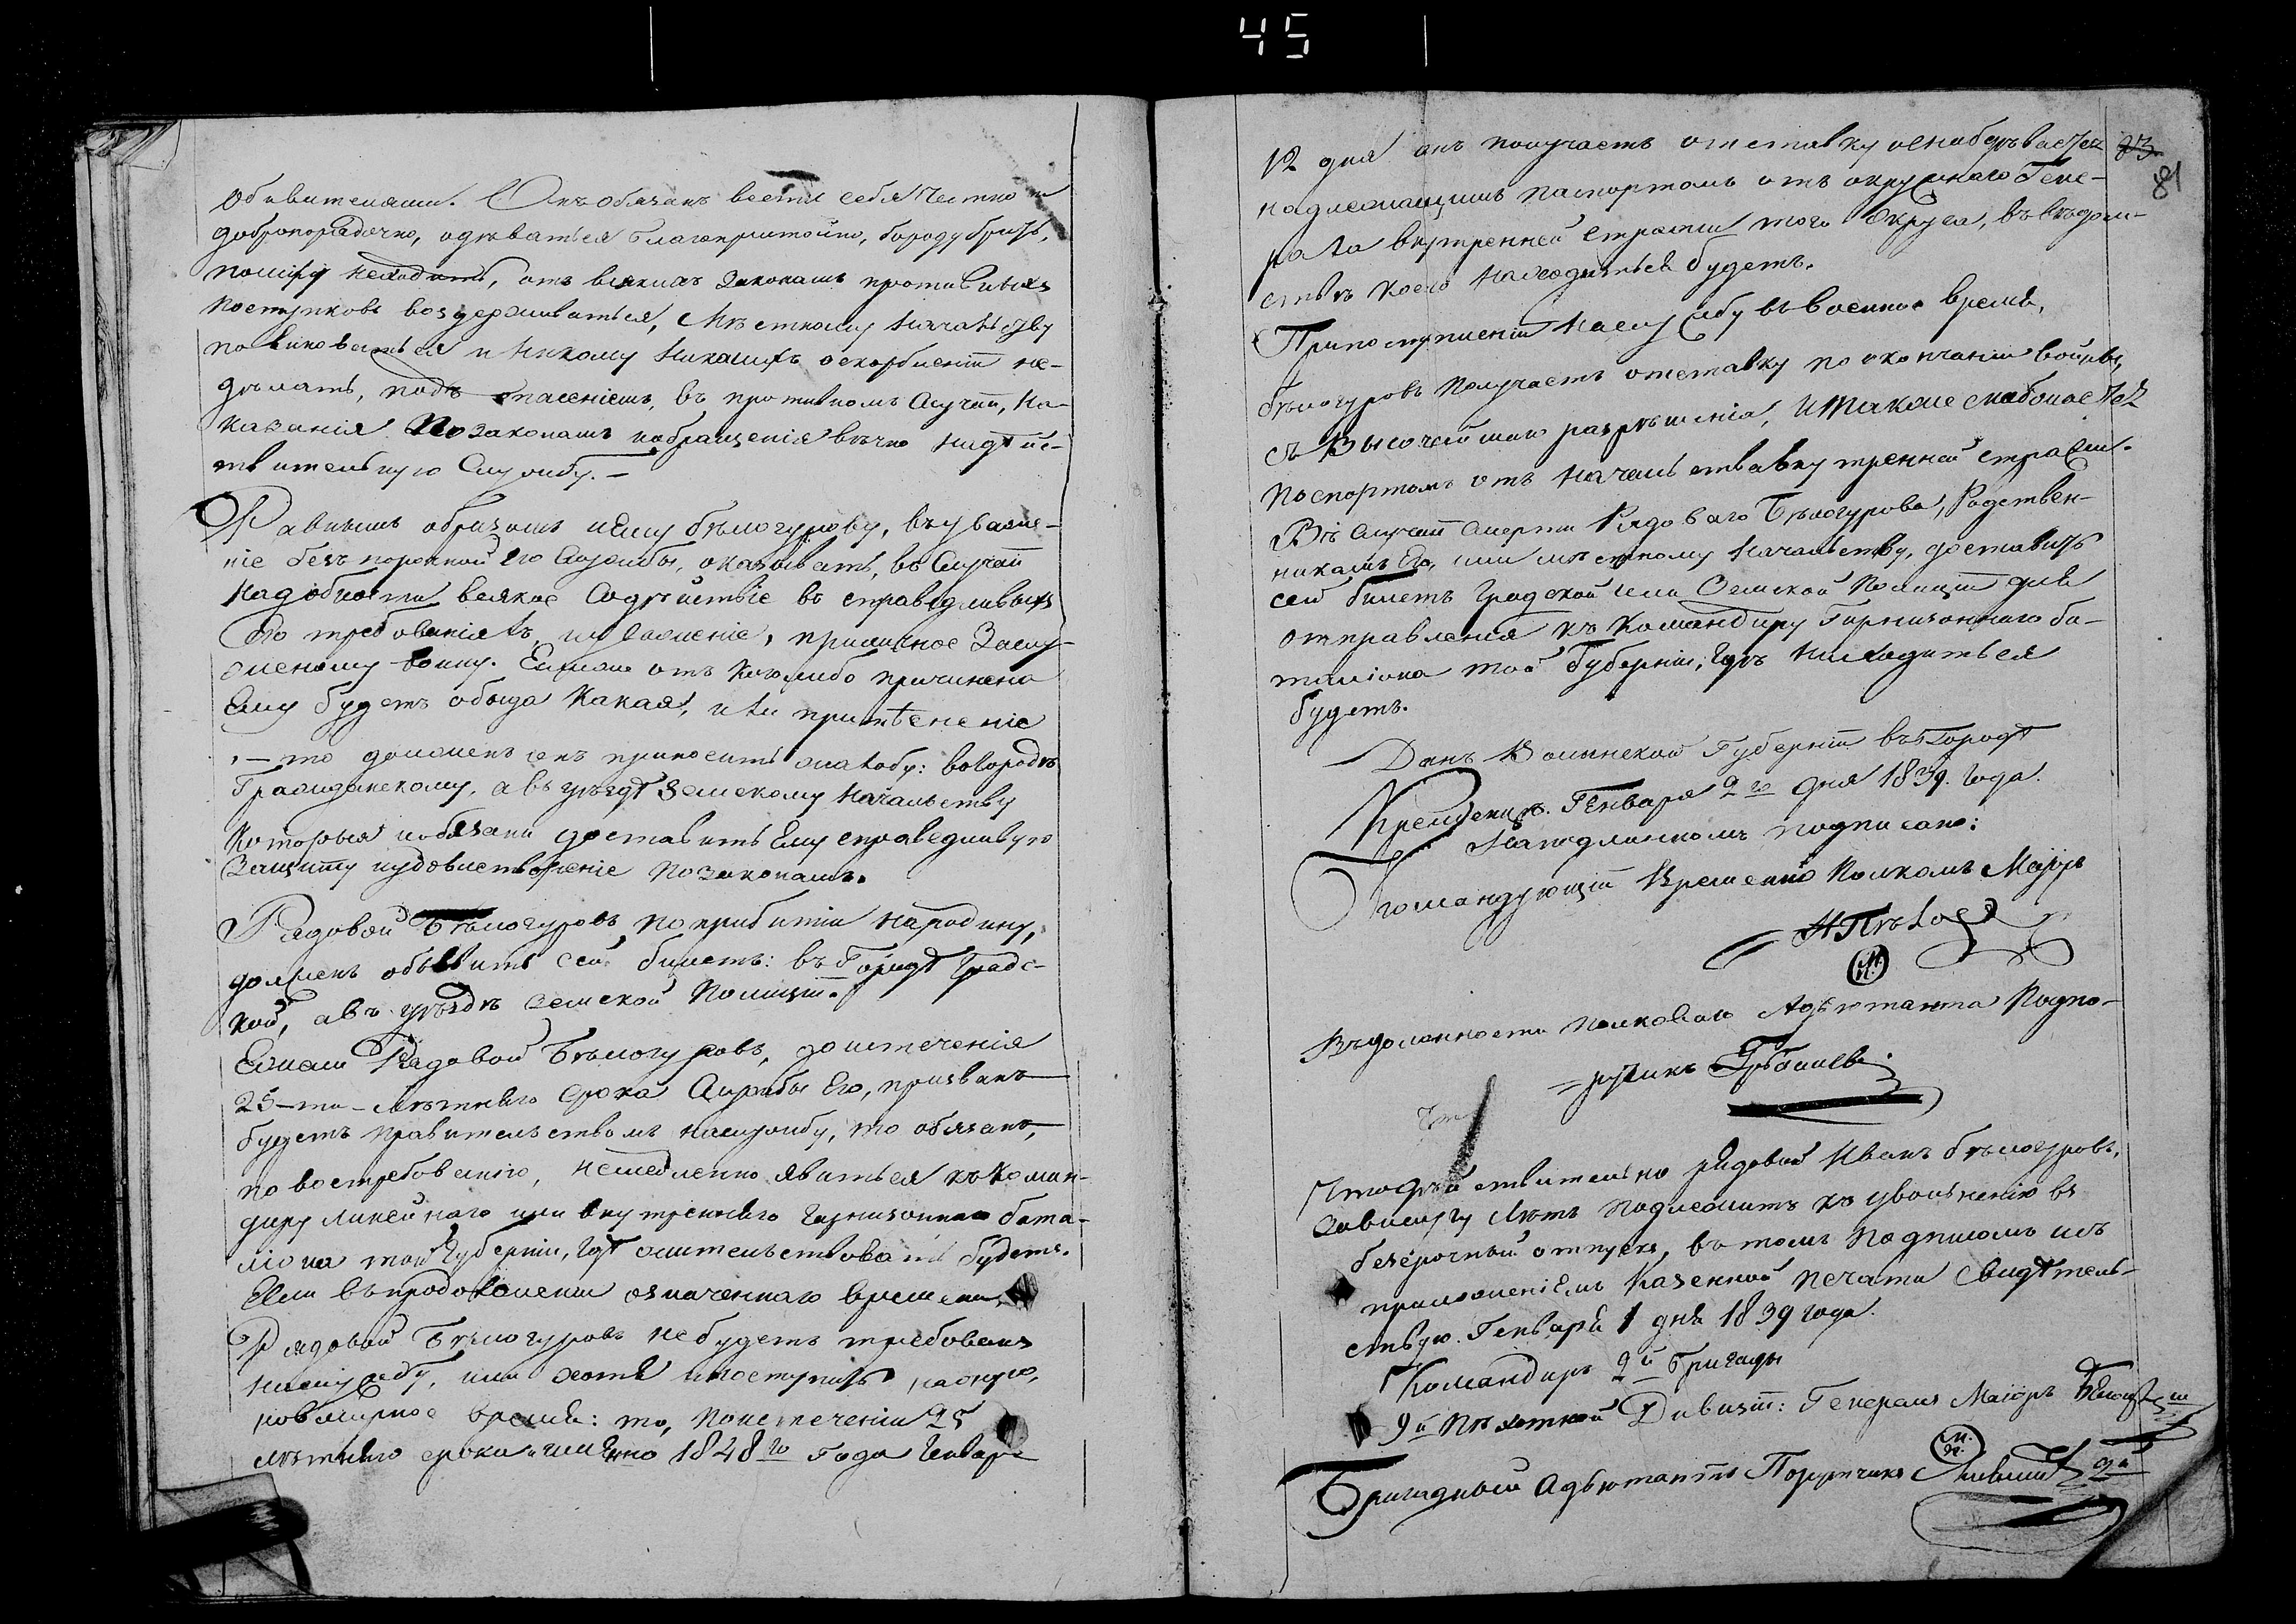 45
обывителями. Онъ обязанъ вести себя честно и
добропорядочно, одѣваться благопристойно, бороду брить,
по миру неходить, отъ всякихъ законамъ противныхъ
поступковъ воздерживаться, мѣстному начальству
повиноваться и никому никакихъ оскорбленій не-
дѣлать, подъ опасеніемъ, въ противномъ случаи, на-
казанія по законамъ и обращенія вѣчно надѣйс-
твительную службу. —
Равнымъ образомъ и ему бѣлогурову, въ уваже-
ніе безъ порочной его службы, оказывать, во случаи
надобности всякое содѣйствіе въ справедливыхъ
его требованіяхъ, и уваженіе, приличное заслу-
женому воину. Ежели отъ коголибо причинена
ему будетъ обыда какая, или притѣсненіе
, — то долженъ онъ приносить жалобу: вогородѣ
Гражданскому, а въ уѣздѣ Земскому начальству
которыя и обязаны доставить ему справедливую
защиту и удовлетвореніе по законамъ.
Рядовой Бѣлогуровъ по прибытіи народину,
долженъ объявить сей билетъ: въ Городѣ Градс-
кой, а въ уѣздѣ земской полиціи.
Ежели Рядовой Бѣлогуровъ, до истеченія
25-ти-лѣтняго срока службы его, призванъ
будетъ правительствомъ наслужбу, то обязанъ,
по востребованію, немедленно явиться къ коман-
диру линейнаго или внутренняго гарнизоннаго бата-
ліона той Губерніи, гдѣ жительствовать будетъ.
Если въ продолженіи означеннаго времени,
Рядовой Бѣлогуровъ не будетъ требованъ
наслужбу, или хотя и поступитъ на оную,
но въ мирное время: то, по истеченіи 25
лѣтняго срока именно 1848го года Генваря
12 дня онъ получаетъ отставку и снабдѣвается
надлежащимъ паспортомъ отъ окружнаго Гене-
рала внутренней стражи того Округа, въ вѣдом-
ствѣ коего находиться будетъ.
83
81
При поступленіи наслужбу въ военное время,
бѣлогуровъ получаетъ отставку по окончаніи войны,
съ Высочайшаго разрѣшенія, и также снабжается
поспортомъ отъ начальства внутренней стражи.
Въ случаи смерти Рядоваго Бѣлогурова, Родствен-
никамъ его, или мѣстному начальству, доставить
сей билетъ Градской или Земской полиціи для
отправленія къ командиру Гарнизоннаго ба-
таліона той Губерніи, гдѣ находиться
будетъ.
Данъ Волынской Губерніи въ Городѣ
Кременцѣ. Генваря 2го дня 1839. года.
Наподлинномъ подписано:
Командующій временно полкомъ Маіоръ
М. П.
Въ должности полковаго Адъютанта Подпо-
ручикъ
Что дѣйствительно рядовой Иванъ бѣлогуровъ,
завыслугу лѣтъ подлежитъ къ увольненію въ
безсрочный отпускъ, въ томъ подписомъ исъ
приложеніемъ казенной печати свидѣтель-
ствую. Генваря 1 дня 1839 года.
Командиръ 2й бригады
9й пѣхотной Дивизіи: Генералъ Маіоръ
М. П.
Бригадный Адъютантъ Поручикъ